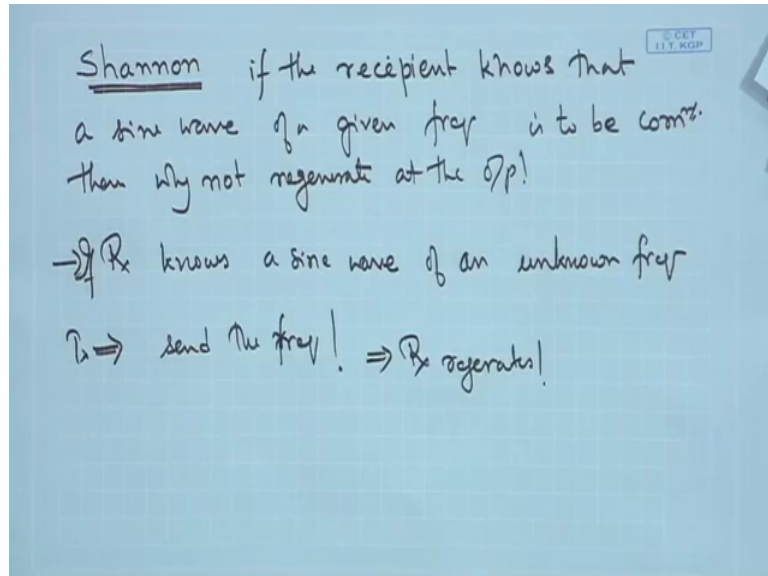 © CET
I.I.T. KGP
Shannon if the recipient knows that
a sine wave of a given freq is to be comm.
then why not regenerate at the o/p!
→ If Rx knows a sine wave of an unknown freq
Tx ⇒ send the freq! ⇒ Rx regerates!